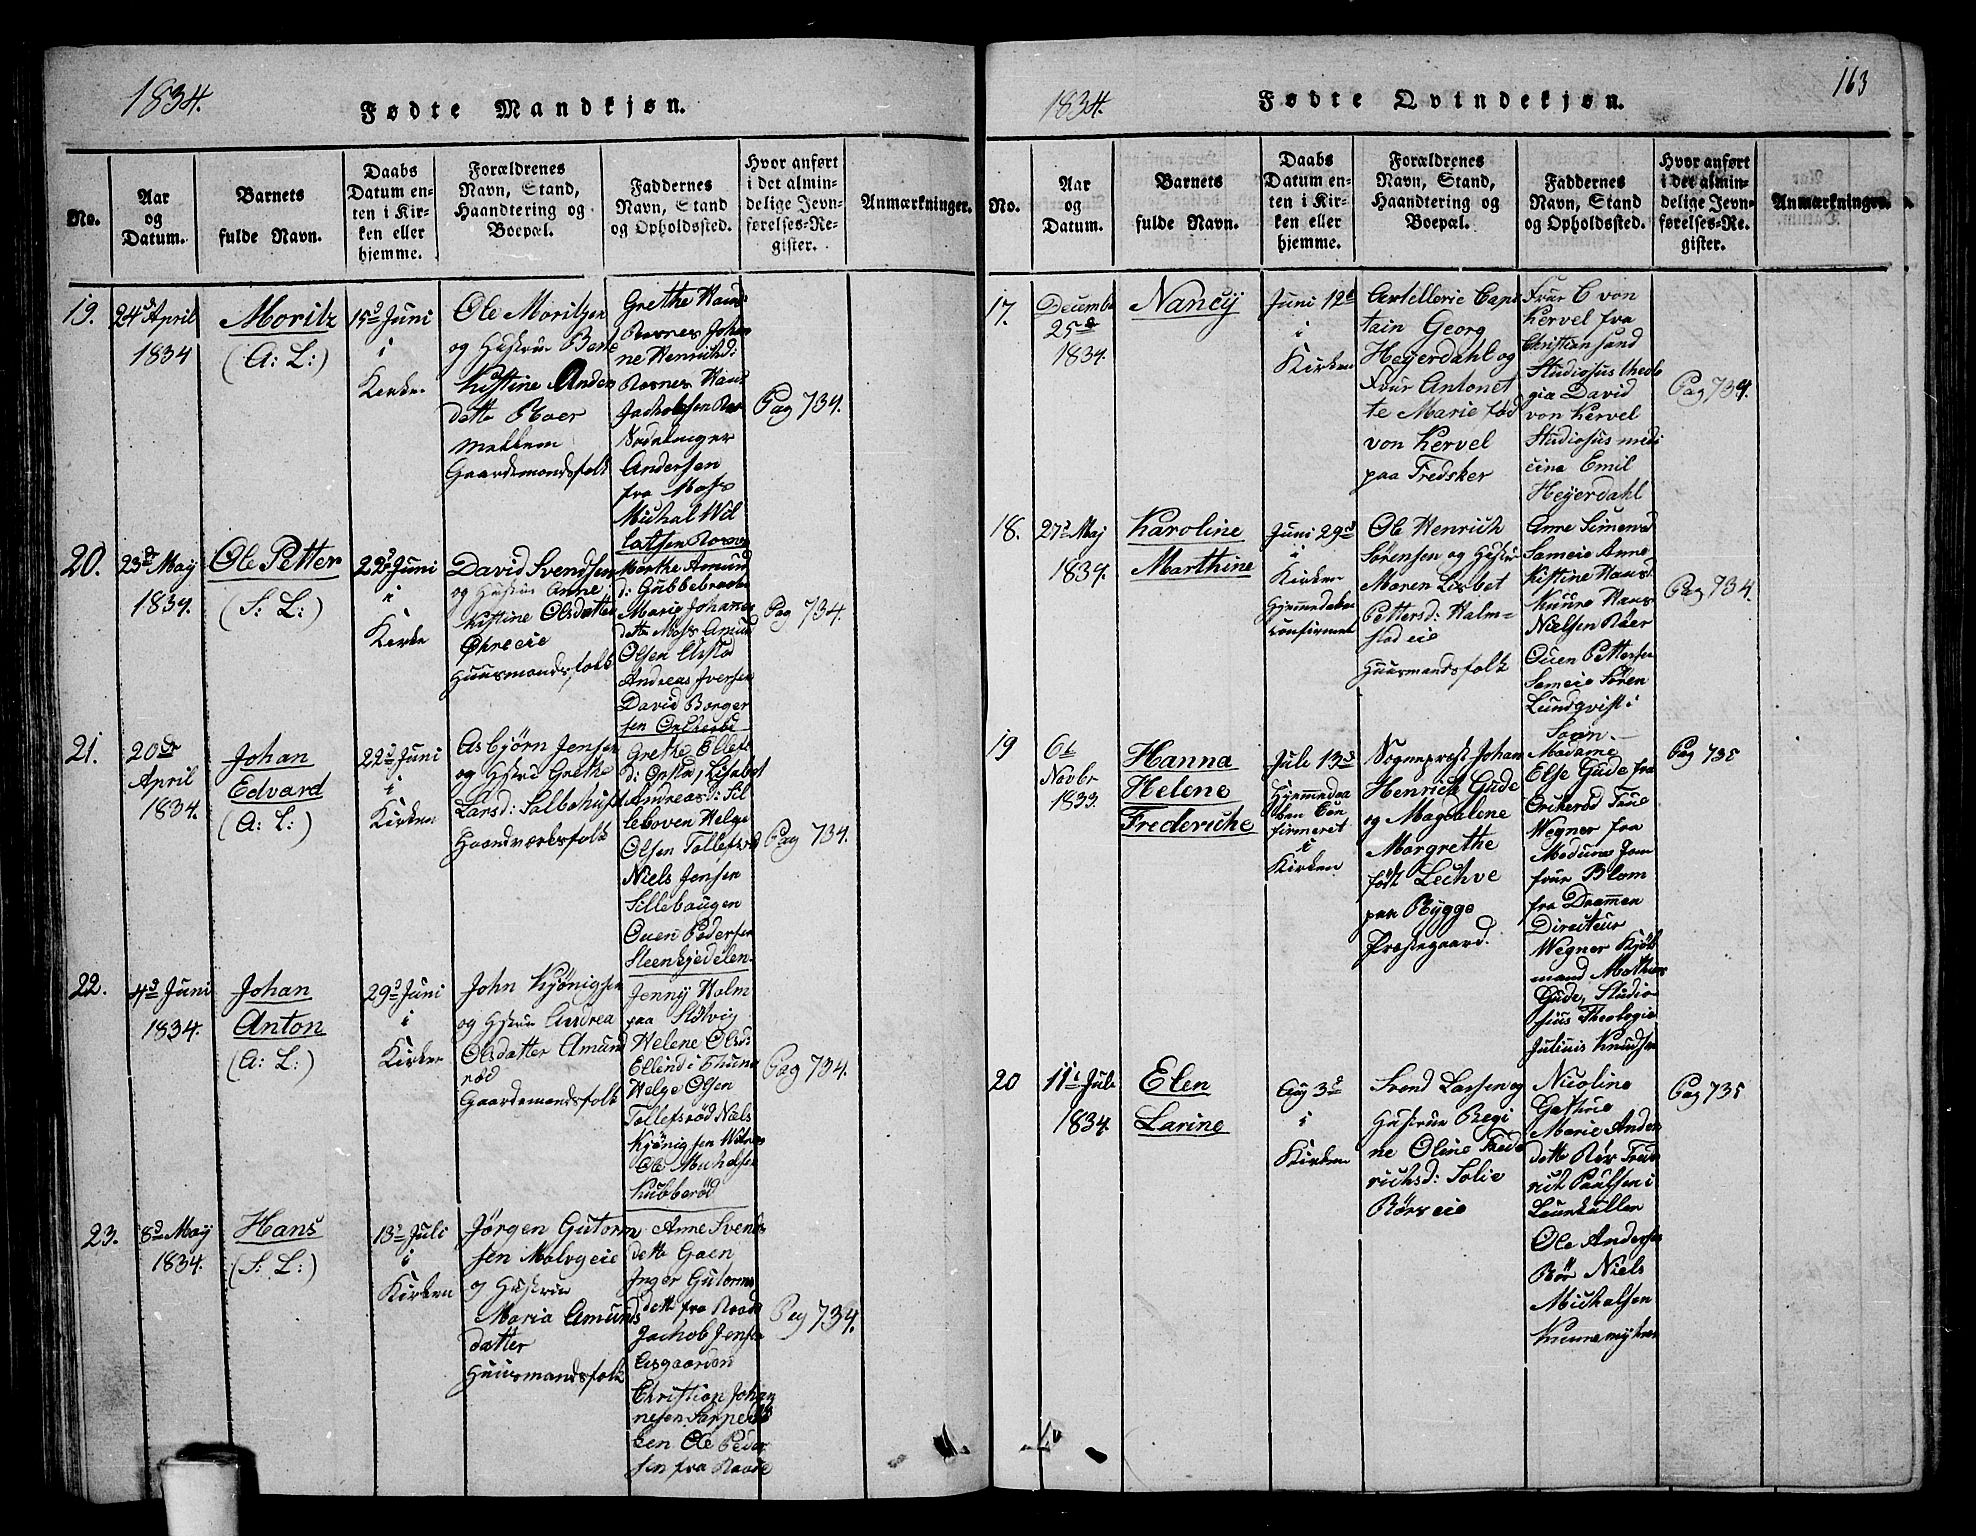 1834.
Fødte Mandkjøn.
No.
Aar
og
Datum.
Barnets
fulde Navn.
Daabs
Datum en-
ten i Kir-
ken eller
hjemme.
Forældrenes
Navn, Stand,
Haandtering og
Boepæl.
Faddernes
Navn, Stand
og Opholdssted.
Hvor anført
i det almin-
delige Jevn-
førelses-Re-
gister.
Anmærkninger.
19.
24d April
1834
Moritz
(A: L:)
15d Juni
i
Kirken
Ole Moritzen
og Hustrue Berte
Kistine Anders
datte Roer
mellem
Gaardmandsfolk
Grethe Hans:
Rosnes Johan
ne Henrichd:
Rosnes Hans
Jachobsen Roer
Andersen
fra Moss
Michal Wil
latsen Rosnes
Pag 734.
20.
23de May
1834
Ole Petter
(S: L:)
22d Juni
i
Kirke
David Svendsen
og Hustrue Anne
Kistine Olsdatter
Øhre eie
Huusmandsfolk
Amund
d: Gubbebraaten
Marie Johanes
datte Moss Amund
Olsen
Andreas Iversen
David Borger
sen
Pag 734.
21.
20de
April
1834.
Johan
Edvard
(A: L:)
22d Juni
i
Kirken
Asbjørn Jensen
og Hustrue Grethe
Larsd:
Haandværksfolk
Grethe Ellef
d: Lisabet
Andreasd: Sil
lebøven Helge
Olsen Tollefsrød
Niels Jensen
Sillebaugen
Ouen Pedersen
Steenkjedelen.
Pag 734.
22.
4d Juni
1834.
Johan
Anton
(A: L:)
29d Juni
i
Kirken
John Kjønigsen
og Hustrue Andrea
Olsdatter Amund
rød
Gaardemandsfolk
Jenny Holm
paa Slotvig
Helene Olsd:
Ellind i Thune
Helge Olsen
Tollefsrød Niels
Kjønigsen
Ole Michelsen
Kubberød
Pag 734.
23.
8d May
1834.
Hans
(S: L:)
13d Juli
i
Kirken
Jørgen Gutorm
sen Molvgeie
og Hustrue
Maria Amunds
datter
Huusmandsfolk
Anne Svends
datte Goen
Inger Gutorms
datte fra Raade
Jachob Jensen
Aasgaarden
Christian Johan
nesen
Ole Peder
sen fra Raade
Pag 734.
163
1834.
Fødte Qvindekjøn.
No.
Aar
og
Datum.
Barnets
fulde Navn.
Daabs
Datum en-
ten i Kir-
ken eller
hjemme.
Forældrenes
Navn, Stand,
Haandtering og
Boepæl.
Faddernes
Navn, Stand
og Opholdssted.
Hvor anført
i det almin-
delige Jevn-
førelses-Re-
gister.
Anmærkninger.
17.
Decembe
25de
1834.
Nancy
Juni 12d
i
Kirken
Artellerie Cap
tain Georg
Heyerdahl og
Frue Antonet
te Marie fød
von Kervel
paa Fredsker
Frue C von
Kervel fra
Christiansand
Studiosus theolo
gia David
von Kervel
Studiosus medi
cina Emil
Heyerdahl
Pag 734.
18.
27d Maj
1834.
Karoline
Marthine
Juni 29d
i
Kirken
Hjemmedøbt
Confirmert
Ole Henrich
Sørensen og Hustrue
Maren Lisbet
Pettersd: Halm-
stad eie
Huusmandsfolk
Anne Simensd
Sameie Anne
Kistine Hansd
Hans
Nielsen Röer
Ouen Pettersen
Sameie Søren
Lundqvist i
Soon.
Pag 734.
19
6t
Novbr
1833.
Hanna
Helene
Frederiche
Juli 13d
Hjemmedø
ben Con
firmeret
i
Kirken
Sogneprest Johan
Henrich Gude
og Magdalene
Margrethe
født Lechve
paa Rygge
Præstegaard.
Madame
Else Gude fra
Frue
Wegner fra
Modum Jom
frue Blom
fra Dramen
Directeur
Wegner Kjøb
mand Mathias
Gude, Studio
sius Theologie
Julius Knudsen
Pag 735
20
11t Juli
1834.
Elen
Larine
Aug 3d
i
Kirken
Svend Larsen og
Hustrue Regi
ne Oline Frede
richsd: Solie
Börseie
Nicoline
Marie Anders
datte Rör Frede
rich Paulsen i
Ole Andersen
Rör Niels
Michalsen
Pag 735